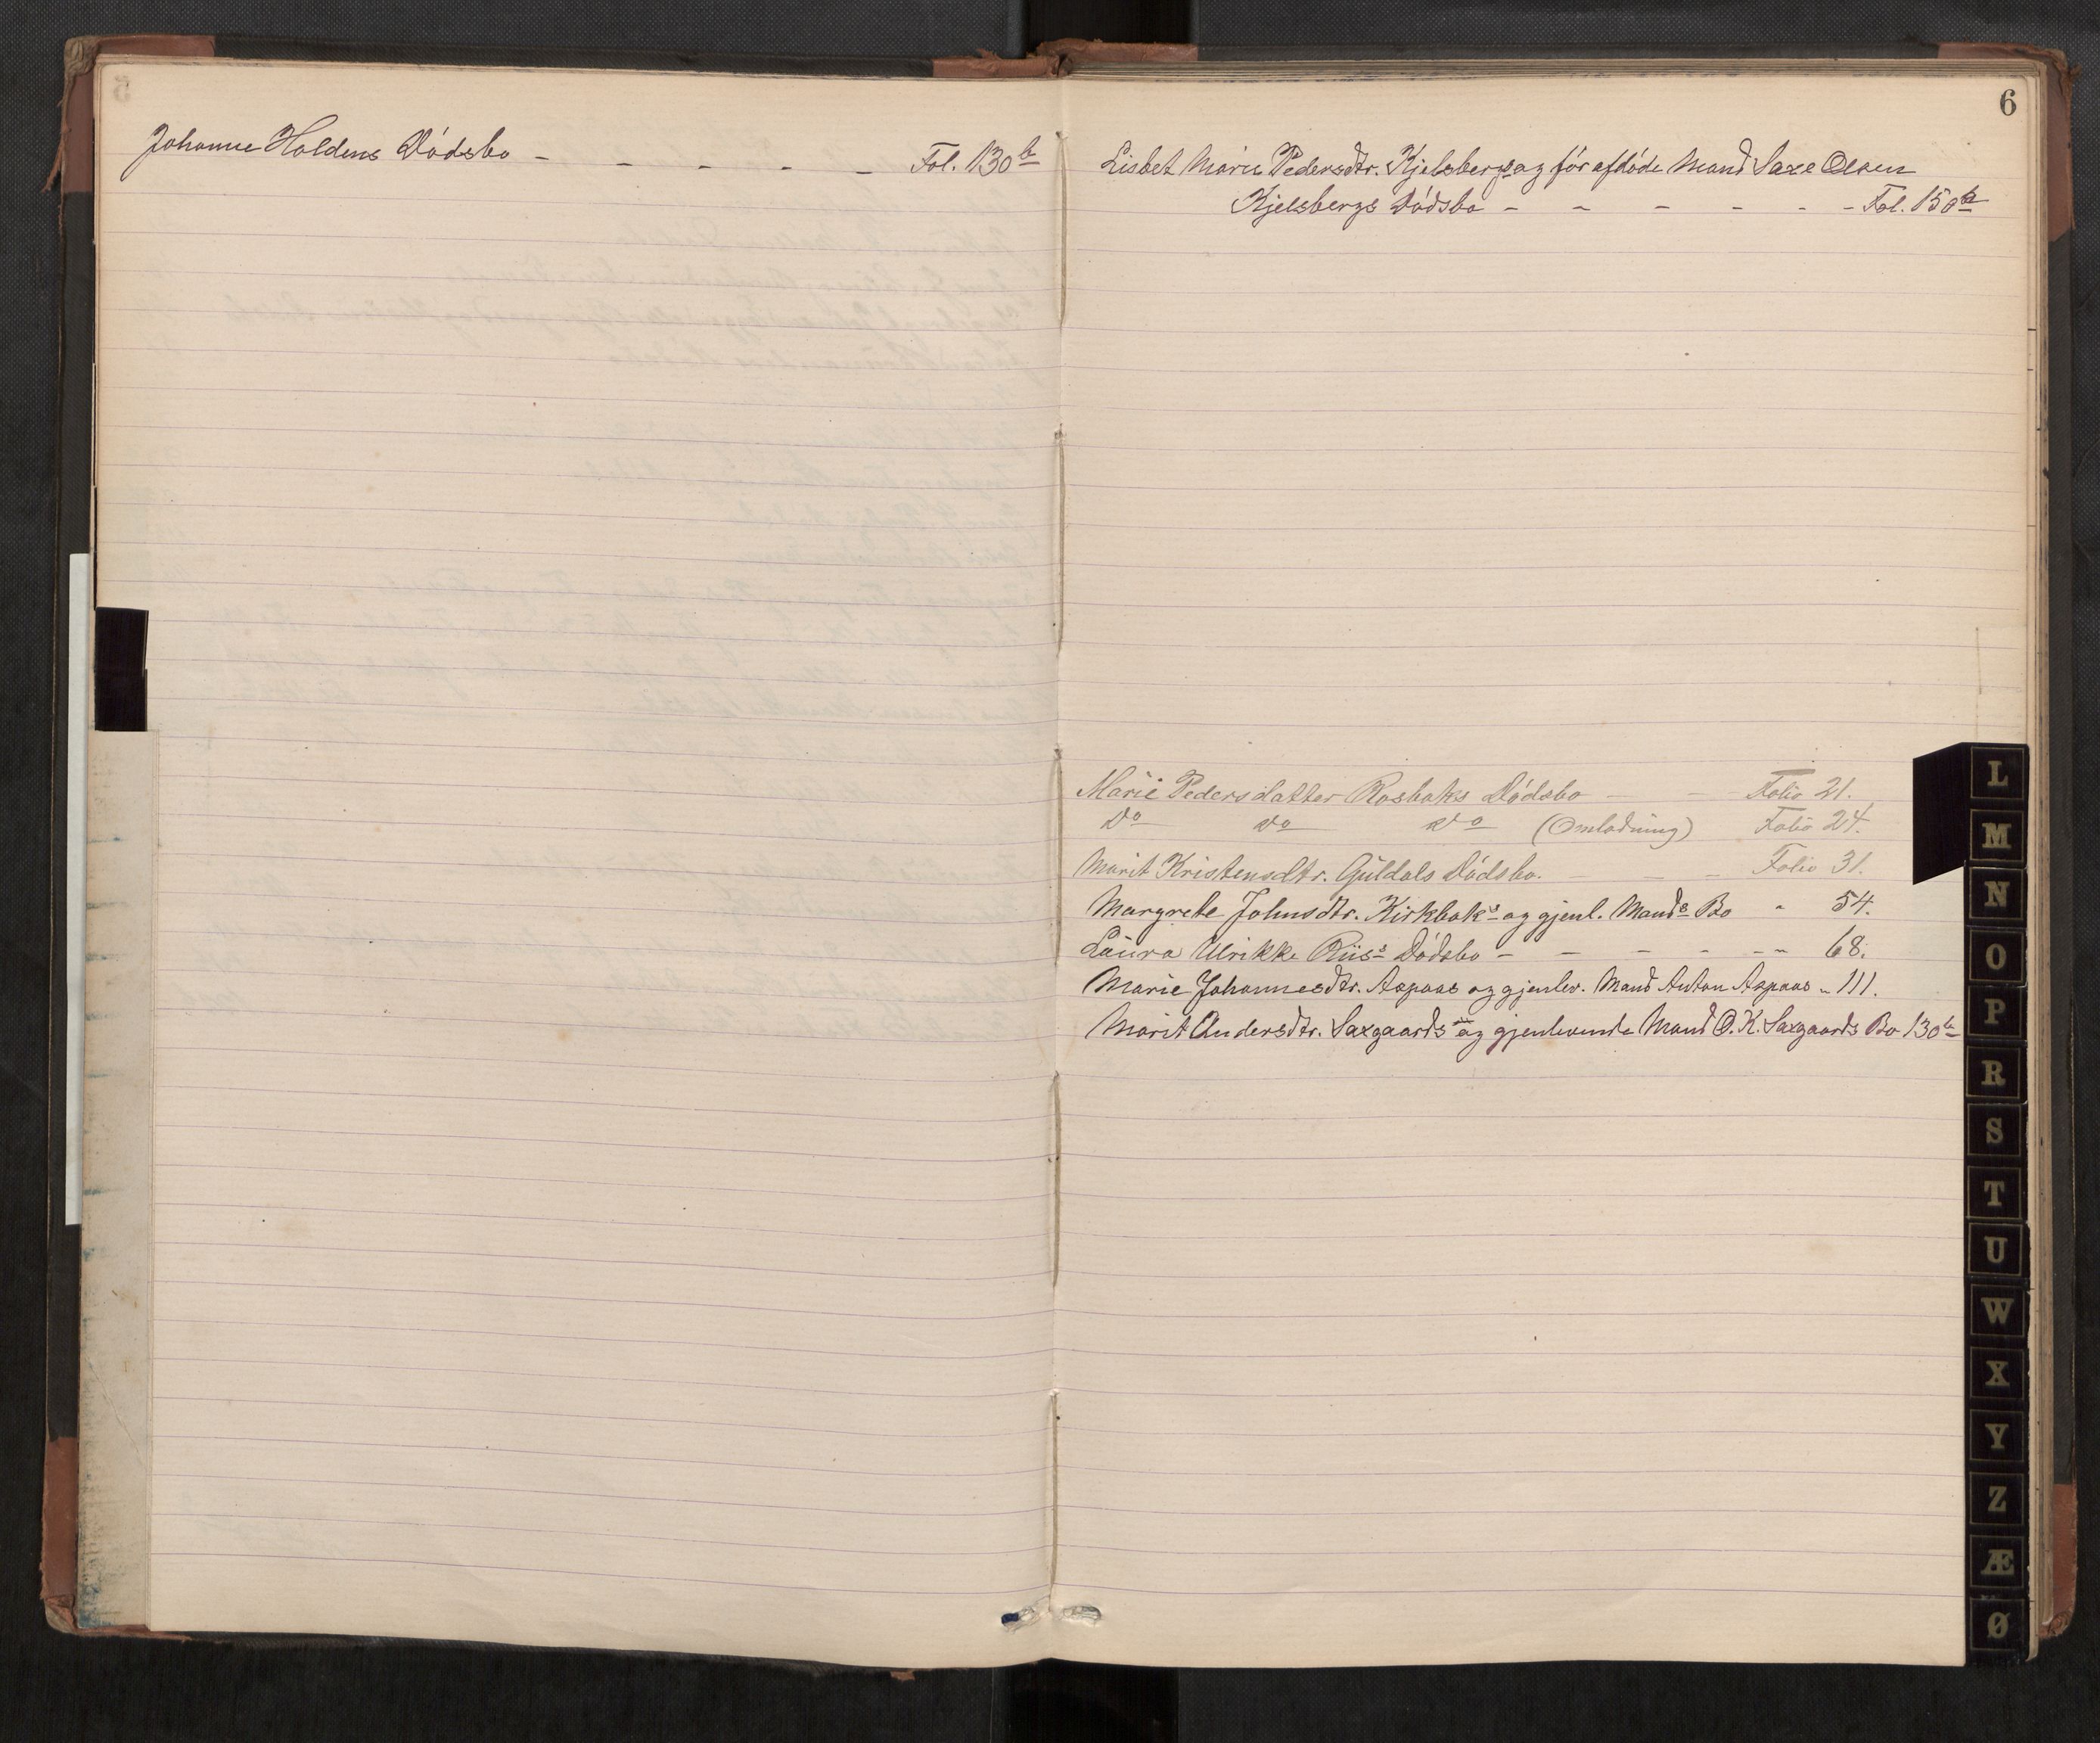 Johanne Holdens Dødsbo - - - - - Fol. 130b
6
Lisbet Marie Pedersdtr. Kjelsbergs og før afdøde Mand Saxe Olsen
Kjelsbergs Dødsbo - - - - - - Fol. 150b
Marie Pedersdatter Rosbaks Dødsbo - - Folio 21.
Do Do Do (Omlodning) Folio 24.
Marit Kristensdtr. Guldals Dødsbo. - - - Folio 31.
Margrete Johnsdtr. Kirkbaks og gjenl. Mands Bo " 54.
Laura Ulrikke Riiss Dødsbo - - - - - " 68.
Marie Johannesdtr. Aspaas og gjenlev. Mand Anton Aspaas " 111.
Marit Andersdtr. Saxgaards og gjenlevende Mand O. K. Saxgaards Bo 130b
L
M
N
O
P
R
S
T
U
W
X
Y
Z
Æ
Ø